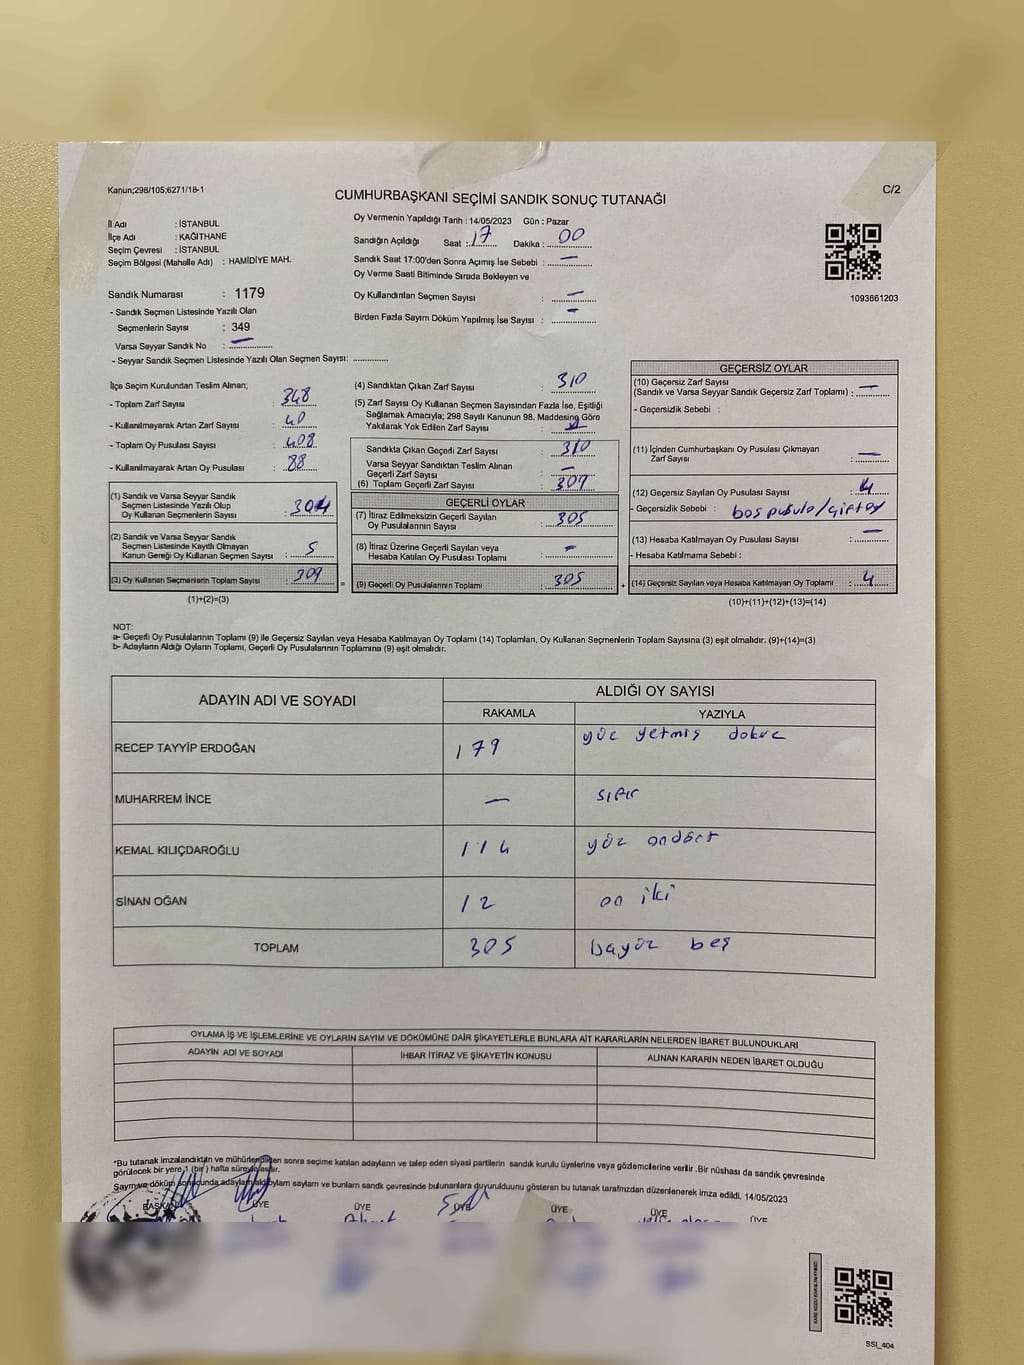 Kanun;298/105;6271/18-1
C/2
CUMHURBAŞKANI SEÇİMİ SANDIK SONUÇ TUTANAĞI
İl Adı : İSTANBUL
İlçe Adı : KAĞITHANE
Seçim Çevresi : İSTANBUL
Seçim Bölgesi (Mahalle Adı) : HAMİDİYE MAH.
Sandık Numarası : 1179
- Sandık Seçmen Listesinde Yazılı Olan
Seçmenlerin Sayısı : 349
Varsa Seyyar Sandık No : —
- Seyyar Sandık Seçmen Listesinde Yazılı Olan Seçmen Sayısı: ............
Oy Vermenin Yapıldığı Tarih : 14/05/2023 Gün : Pazar
Sandığın Açıldığı Saat : 17 Dakika : 00
Sandık Saat 17:00'den Sonra Açımış İse Sebebi : —
Oy Verme Saati Bitiminde Sırada Bekleyen ve
Oy Kullandırılan Seçmen Sayısı : —
Birden Fazla Sayım Döküm Yapılmış İse Sayısı : —
1093661203
İlçe Seçim Kurulundan Teslim Alınan;
- Toplam Zarf Sayısı : 348
- Kullanılmayarak Artan Zarf Sayısı : 40
- Toplam Oy Pusulası Sayısı : 408
- Kullanılmayarak Artan Oy Pusulası : 88
(1) Sandık ve Varsa Seyyar Sandık
Seçmen Listesinde Yazılı Olup
Oy Kullanan Seçmenlerin Sayısı : 304
(2) Sandık ve Varsa Seyyar Sandık
Seçmen Listesinde Kayıtlı Olmayan
Kanun Gereği Oy Kullanan Seçmen Sayısı : 5
(3) Oy Kullanan Seçmenlerin Toplam Sayısı : 309
(1)+(2)=(3)
(4) Sandıktan Çıkan Zarf Sayısı : 310
(5) Zarf Sayısı Oy Kullanan Seçmen Sayısından Fazla İse, Eşitliği
Sağlamak Amacıyla; 298 Sayılı Kanunun 98. Maddesine Göre
Yakılarak Yok Edilen Zarf Sayısı :
Sandıkta Çıkan Geçerli Zarf Sayısı : 310
Varsa Seyyar Sandıktan Teslim Alınan
Geçerli Zarf Sayısı : —
(6) Toplam Geçerli Zarf Sayısı : 309
GEÇERLİ OYLAR
(7) İtiraz Edilmeksizin Geçerli Sayılan
Oy Pusulalarının Sayısı : 305
(8) İtiraz Üzerine Geçerli Sayılan veya
Hesaba Katılan Oy Pusulası Toplamı : —
= (9) Geçerli Oy Pusulalarının Toplamı : 305 +
GEÇERSİZ OYLAR
(10) Geçersiz Zarf Sayısı
(Sandık ve Varsa Seyyar Sandık Geçersiz Zarf Toplamı) : —
- Geçersizlik Sebebi :
(11) İçinden Cumhurbaşkanı Oy Pusulası Çıkmayan
Zarf Sayısı : —
(12) Geçersiz Sayılan Oy Pusulası Sayısı : 4
- Geçersizlik Sebebi : boş pusula/çift oy
(13) Hesaba Katılmayan Oy Pusulası Sayısı : —
- Hesaba Katılmama Sebebi :
(14) Geçersiz Sayılan veya Hesaba Katılmayan Oy Toplamı : 4
(10)+(11)+(12)+(13)=(14)
NOT:
a- Geçerli Oy Pusulalarının Toplamı (9) ile Geçersiz Sayılan veya Hesaba Katılmayan Oy Toplamı (14) Toplamları, Oy Kullanan Seçmenlerin Toplam Sayısına (3) eşit olmalıdır. (9)+(14)=(3)
b- Adayların Aldığı Oyların Toplamı, Geçerli Oy Pusulalarının Toplamına (9) eşit olmalıdır.
ADAYIN ADI VE SOYADI ALDIĞI OY SAYISI
RAKAMLA YAZIYLA
RECEP TAYYİP ERDOĞAN 179 yüz yetmiş dokuz
MUHARREM İNCE — sıfır
KEMAL KILIÇDAROĞLU 114 yüz ondört
SİNAN OĞAN 12 on iki
TOPLAM 305 üçyüz beş
OYLAMA İŞ VE İŞLEMLERİNE VE OYLARIN SAYIM VE DÖKÜMÜNE DAİR ŞİKAYETLERLE BUNLARA AİT KARARLARIN NELERDEN İBARET BULUNDUKLARI
ADAYIN ADI VE SOYADI İHBAR İTİRAZ VE ŞİKAYETİN KONUSU ALINAN KARARIN NEDEN İBARET OLDUĞU
*Bu tutanak imzalandıktan ve mühürlendikten sonra seçime katılan adayların ve talep eden siyasi partilerin sandık kurulu üyelerine veya gözlemcilerine verilir. Bir nüshası da sandık çevresinde
görülecek bir yere 1 (bir) hafta süreyle asılır.
Sayım ve döküm sonucunda adayların sandık çevresinde bulunanlara duyurulduunu gösteren bu tutanak tarafımızdan düzenlenerek imza edildi. 14/05/2023
BAŞKAN ÜYE ÜYE ÜYE ÜYE ÜYE ÜYE
SSI_404